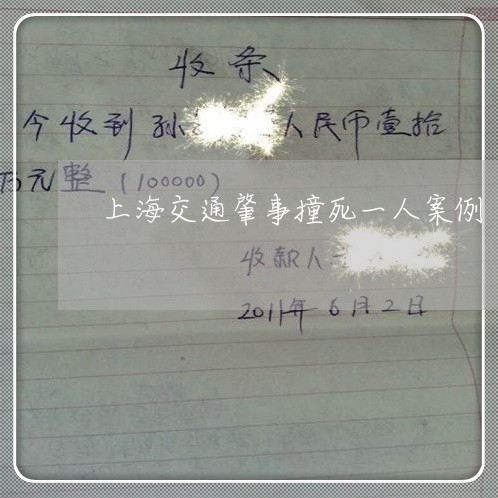 收条
今收到孙 人民币壹拾
万元整(100000)
上海交通肇事撞死一人案例
收款人
2011年6月2日